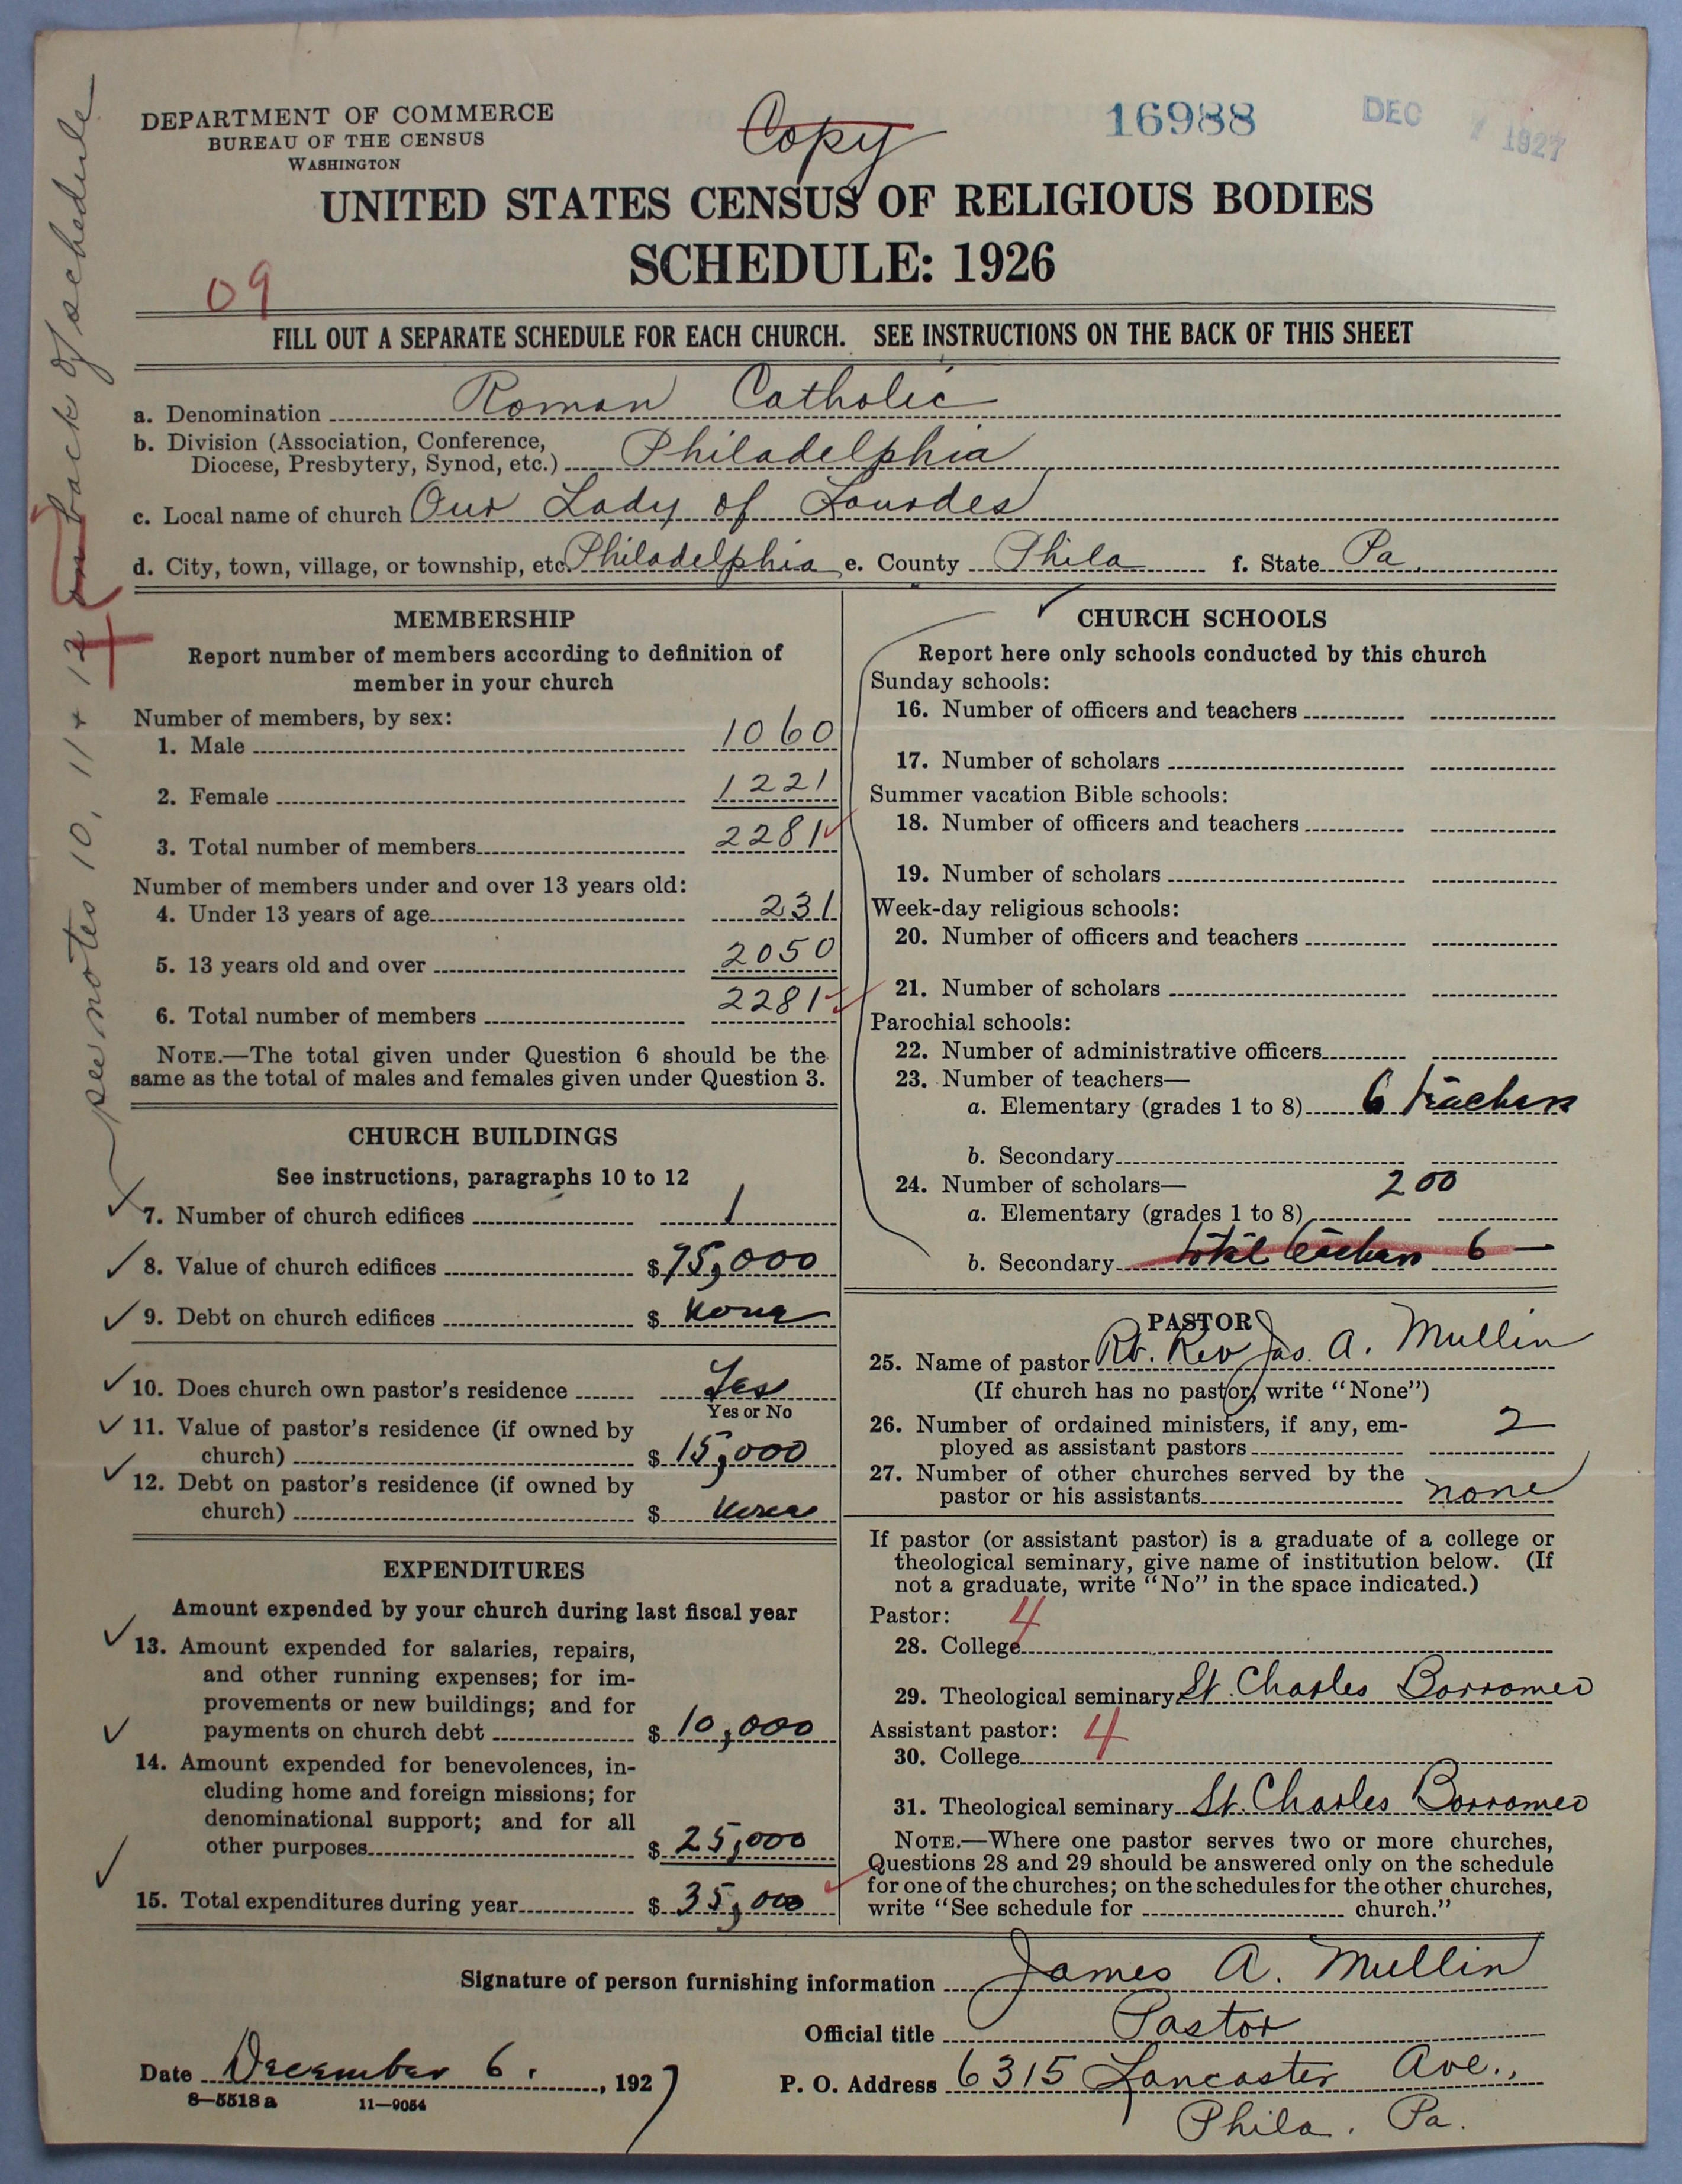 DEPARTMENT OF COMMERCE
BUREAU OF THE CENSUS
WASHINGTON
Copy
16988
DEC 7 1927
UNITED STATES CENSUS OF RELIGIOUS BODIES
SCHEDULE: 1926
09
FILL OUT A SEPARATE SCHEDULE FOR EACH CHURCH. SEE INSTRUCTIONS ON THE BACK OF THIS SHEET
see notes 10, 11 + 12 on back of schedule
a. Denomination Roman Catholic
b. Division (Association, Conference,
Diocese, Presbytery, Synod, etc.) Philadelphia
c. Local name of church Our Lady of Lourdes
d. City, town, village, or township, etc. Philadelphia e. County Phila f. State Pa.
MEMBERSHIP
Report number of members according to definition of
member in your church
Number of members, by sex:
1. Male 1060
2. Female 1221
3. Total number of members 2281
Number of members under and over 13 years old:
4. Under 13 years of age 231
5. 13 years old and over 2050
6. Total number of members 2281
NOTE.—The total given under Question 6 should be the
same as the total of males and females given under Question 3.
CHURCH BUILDINGS
See instructions, paragraphs 10 to 12
7. Number of church edifices 1
8. Value of church edifices $75,000
9. Debt on church edifices $ None
10. Does church own pastor's residence Yes
Yes or No
11. Value of pastor's residence (if owned by
church) $ 15,000
12. Debt on pastor's residence (if owned by
church) $ None
EXPENDITURES
Amount expended by your church during last fiscal year
13. Amount expended for salaries, repairs,
and other running expenses; for im-
provements or new buildings; and for
payments on church debt $ 10,000
14. Amount expended for benevolences, in-
cluding home and foreign missions; for
denominational support; and for all
other purposes $ 25,000
15. Total expenditures during year $ 35,000
CHURCH SCHOOLS
Report here only schools conducted by this church
Sunday schools:
16. Number of officers and teachers
17. Number of scholars
Summer vacation Bible schools:
18. Number of officers and teachers
19. Number of scholars
Week-day religious schools:
20. Number of officers and teachers
21. Number of scholars
Parochial schools:
22. Number of administrative officers
23. Number of teachers—
a. Elementary (grades 1 to 8) 6 teachers
b. Secondary
24. Number of scholars— 200
a. Elementary (grades 1 to 8)
b. Secondary total teachers 6 —
PASTOR
25. Name of pastor Rt. Rev Jas. A. Mullin
(If church has no pastor, write "None")
26. Number of ordained ministers, if any, em-
ployed as assistant pastors 2
27. Number of other churches served by the
pastor or his assistants none
If pastor (or assistant pastor) is a graduate of a college or
theological seminary, give name of institution below. (If
not a graduate, write "No" in the space indicated.)
Pastor: 4
28. College
29. Theological seminary St. Charles Borromeo
Assistant pastor: 4
30. College
31. Theological seminary St. Charles Borromeo
NOTE.—Where one pastor serves two or more churches,
Questions 28 and 29 should be answered only on the schedule
for one of the churches; on the schedules for the other churches,
write "See schedule for church."
Signature of person furnishing information James A. Mullin
Official title Pastor
Date December 6. , 1927
P. O. Address 6315 Lancaster Ave.,
Phila. Pa.
8—5518 a 11—9054